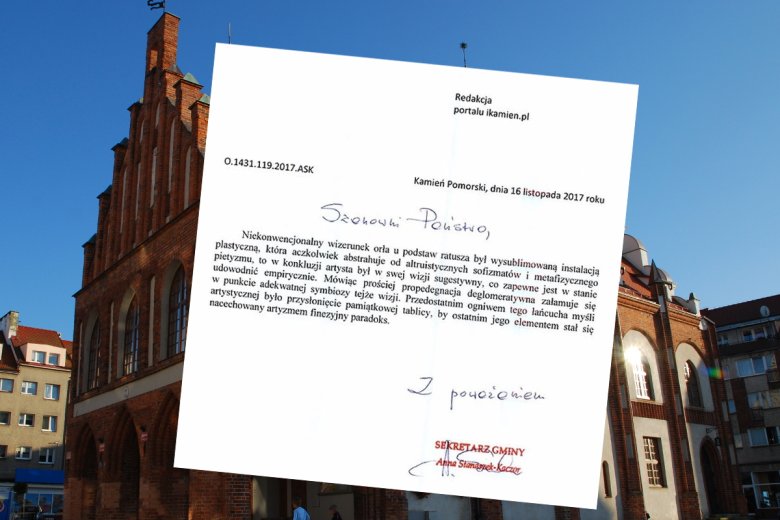 Redakcja
portalu ikamien.pl
O.1431.119.2017.ASK
Kamień Pomorski, dnia 16 listopada 2017 roku
Szanowni Państwo,
Niekonwencjonalny wizerunek orła u podstaw ratusza był wysublimowaną instalacją
plastyczną, która aczkolwiek abstrahuje od altruistycznych sofizmatów i metafizycznego
pietyzmu, to w konkluzji artysta był w swej wizji sugestywny, co zapewne jest w stanie
udowodnić empirycznie. Mówiąc prościej propedegnacja deglomeratywna załamuje się
w punkcie adekwatnej symbiozy tejże wizji. Przedostatnim ogniwem tego łańcucha myśli
artystycznej było przysłonięcie pamiątkowej tablicy, by ostatnim jego elementem stał się
nacechowany artyzmem finezyjny paradoks.
Z poważaniem
SEKRETARZ GMINY
Anna Stanaszek-Kaczor